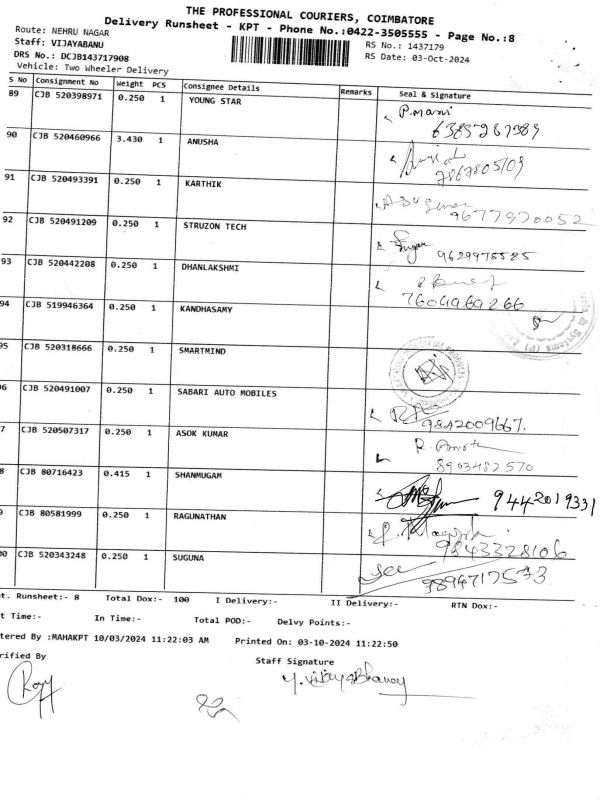 THE PROFESSIONAL COURIERS, COIMBATORE
Delivery Runsheet - KPT - Phone No.:0422-3505555 - Page No.:8
Route: NEHRU NAGAR
Staff: VIJAYABANU RS No.: 1437179
DRS No.: DCJB143717908 RS Date: 03-Oct-2024
Vehicle: Two Wheeler Delivery
S No Consignment No Weight PCS Consignee Details Remarks Seal & Signature
89 CJB 520398971 0.250 1 YOUNG STAR P.mani
6385267389
90 CJB 520460966 3.430 1 ANUSHA
7867805109
91 CJB 520493391 0.250 1 KARTHIK
9677970052
92 CJB 520491209 0.250 1 STRUZON TECH
9629978585
93 CJB 520442208 0.250 1 DHANLAKSHMI
7604969266
94 CJB 519946364 0.250 1 KANDHASAMY
95 CJB 520318666 0.250 1 SMARTMIND
6 CJB 520491007 0.250 1 SABARI AUTO MOBILES
9842009667.
7 CJB 520507317 0.250 1 ASOK KUMAR
8903482570
8 CJB 80716423 0.415 1 SHANMUGAM 9442019331
CJB 80581999 0.250 1 RAGUNATHAN
9843328106
00 CJB 520343248 0.250 1 SUGUNA
9894717573
t. Runsheet:- 8 Total Dox:- 100 I Delivery:- II Delivery:- RTN Dox:-
t Time:- In Time:- Total POD:- Delvy Points:-
tered By :MAHAKPT 10/03/2024 11:22:03 AM Printed On: 03-10-2024 11:22:50
rified By Staff Signature